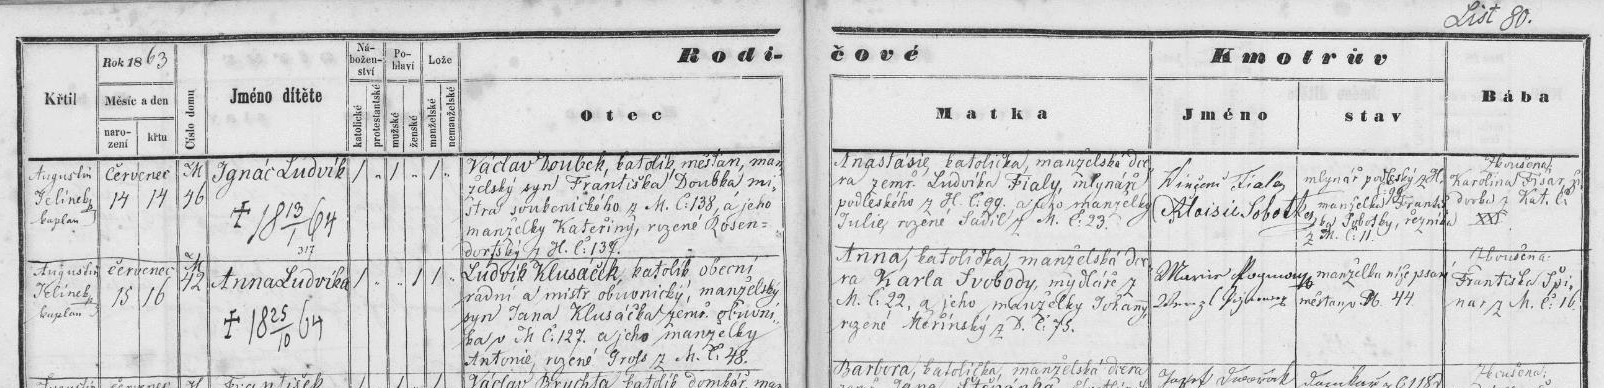 List 80.
Křtil
Rok 1863
Měsíc a den
naro-
zení
křtu
Číslo domu
Jméno dítěte
Ná-
božen-
ství
katolické
protestantské
Po-
hlaví
mužské
ženské
Lože
manželské
nemanželské
Rodi-
čové
Otec
Matka
Kmotrův
Jméno
stav
Bába
Augustin
Jelínek
kaplan
červenec
14 14
M
96
Ignác Ludvík
† 18 13/1 64
1 „ 1 „ 1 „
Václav Doubek, katolík, měšťan, man-
želský syn Františka Doubka mi-
stra soukenického z M. č. 138, a jeho
manželky Kateřiny, rozené Rosen-
dorfský z H. č. 137.
Anastásie, katolička, manželská dce-
ra zemř. Ludvíka Fialy, mlynáře
podleského z H. č. 99. a jeho manželky
Julie, rozené Sadil z M. č. 23.
Vincenc Fiala
Aloisie Sobotka
mlynář podleský z H.
č. 99
manželka Franti-
ška Sobotky, řezníka
z M. č. 11.
Zkoušená
Karolina
dorba z Kat. č.
XXI.
317
Augustin
Jelínek
kaplan
červenec
15 16
M
42
Anna Ludvika
† 18 25/10 64
1 „ „ 1 1 „
Ludvík Klusáček, katolík obecní
radní a mistr obuvnický, manželský
syn Jana Klusáčka zemř. obuvní-
ka v M č. 127. a jeho manželky
Antonie, rozené Gross z M. č. 48.
Anna, katolička, manželská dce-
ra Karla Svobody, mydláře z
M. č. 22, a jeho manželky Johany,
rozené Měřínský z D. č. 75.
Marie
manželka níže psan.
měšťan v M. 44
Zkoušená
Františka Špi-
nar, z M. č. 16.
červenec
František
Václav Bruchta, katolík
Barbora, katolička, manželská dcera
Josef Dvořák
Zkoušená